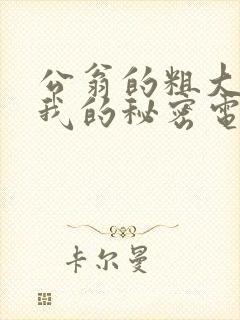 公翁的粗大
我的秘密电
卡尔曼